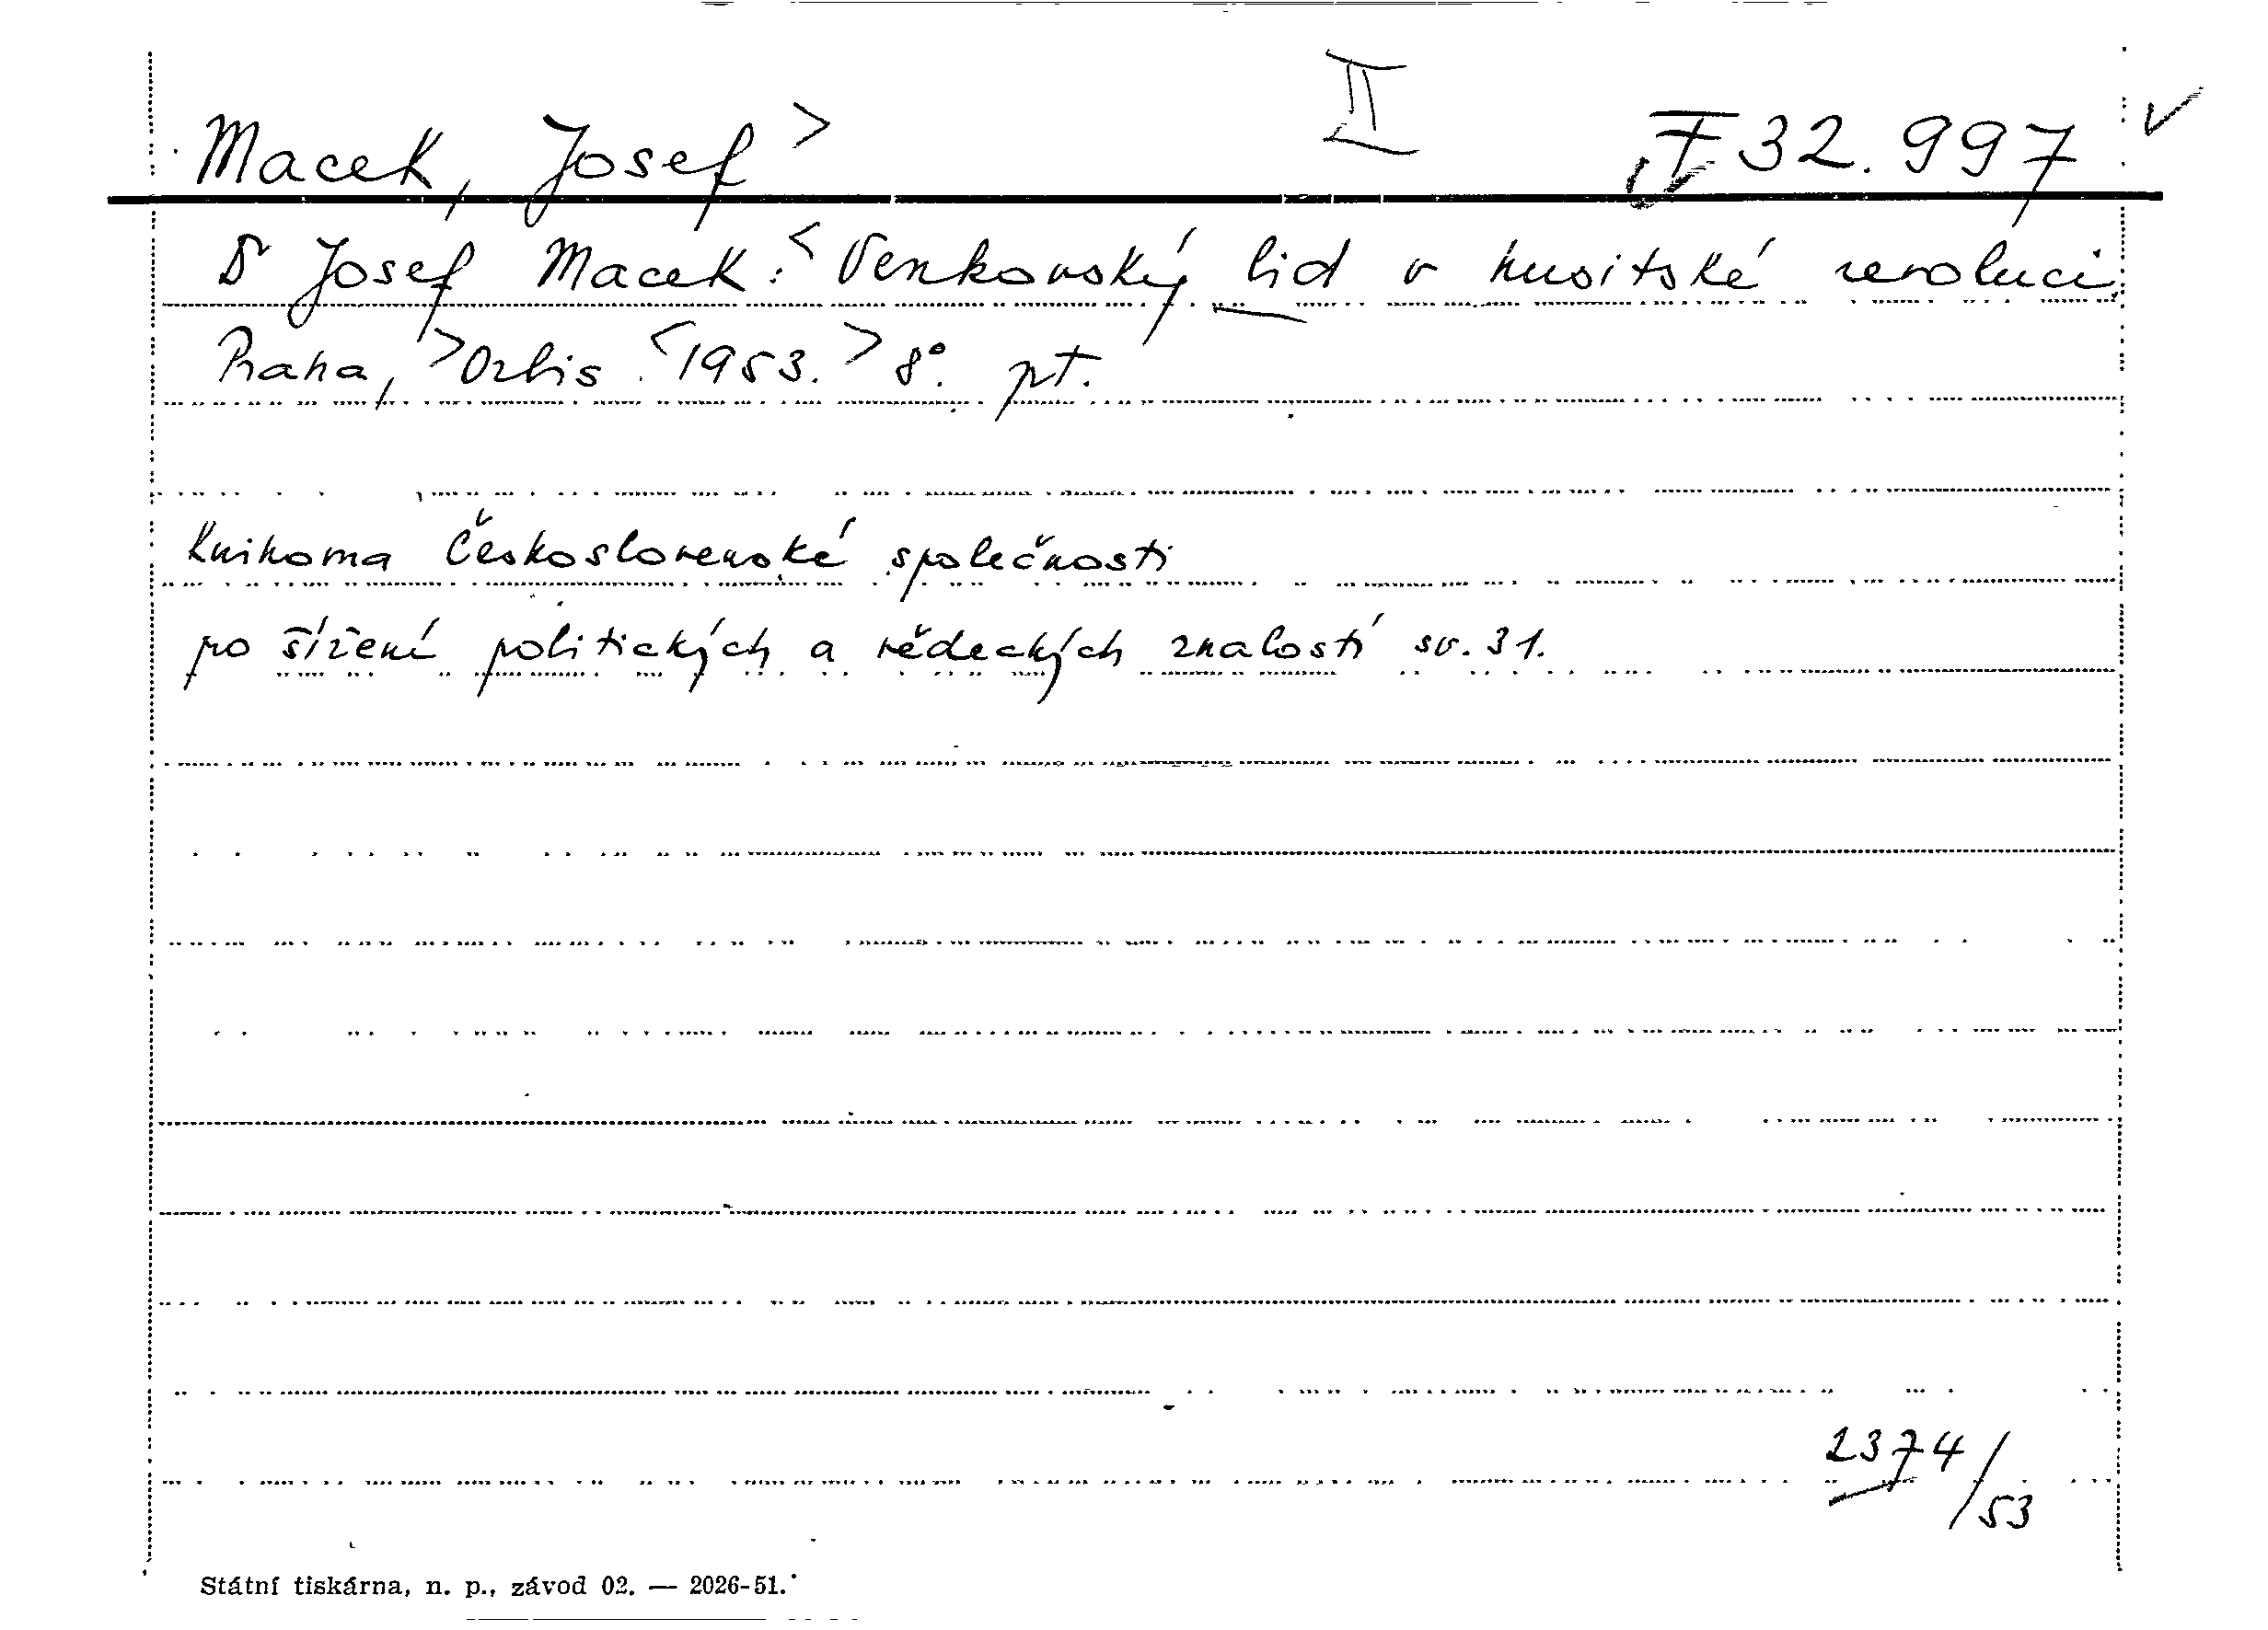 Macek, Josef > II F 32.997 ✓
Dr Josef Macek: < Venkovský lid v husitské revoluci,
Praha, > Orbis. < 1953. > 8°. pt.
Knihovna Československé společnosti
po šíření politických a vědeckých znalostí sv. 31.
2374/53
Státní tiskárna, n. p., závod 02. — 2026-51.